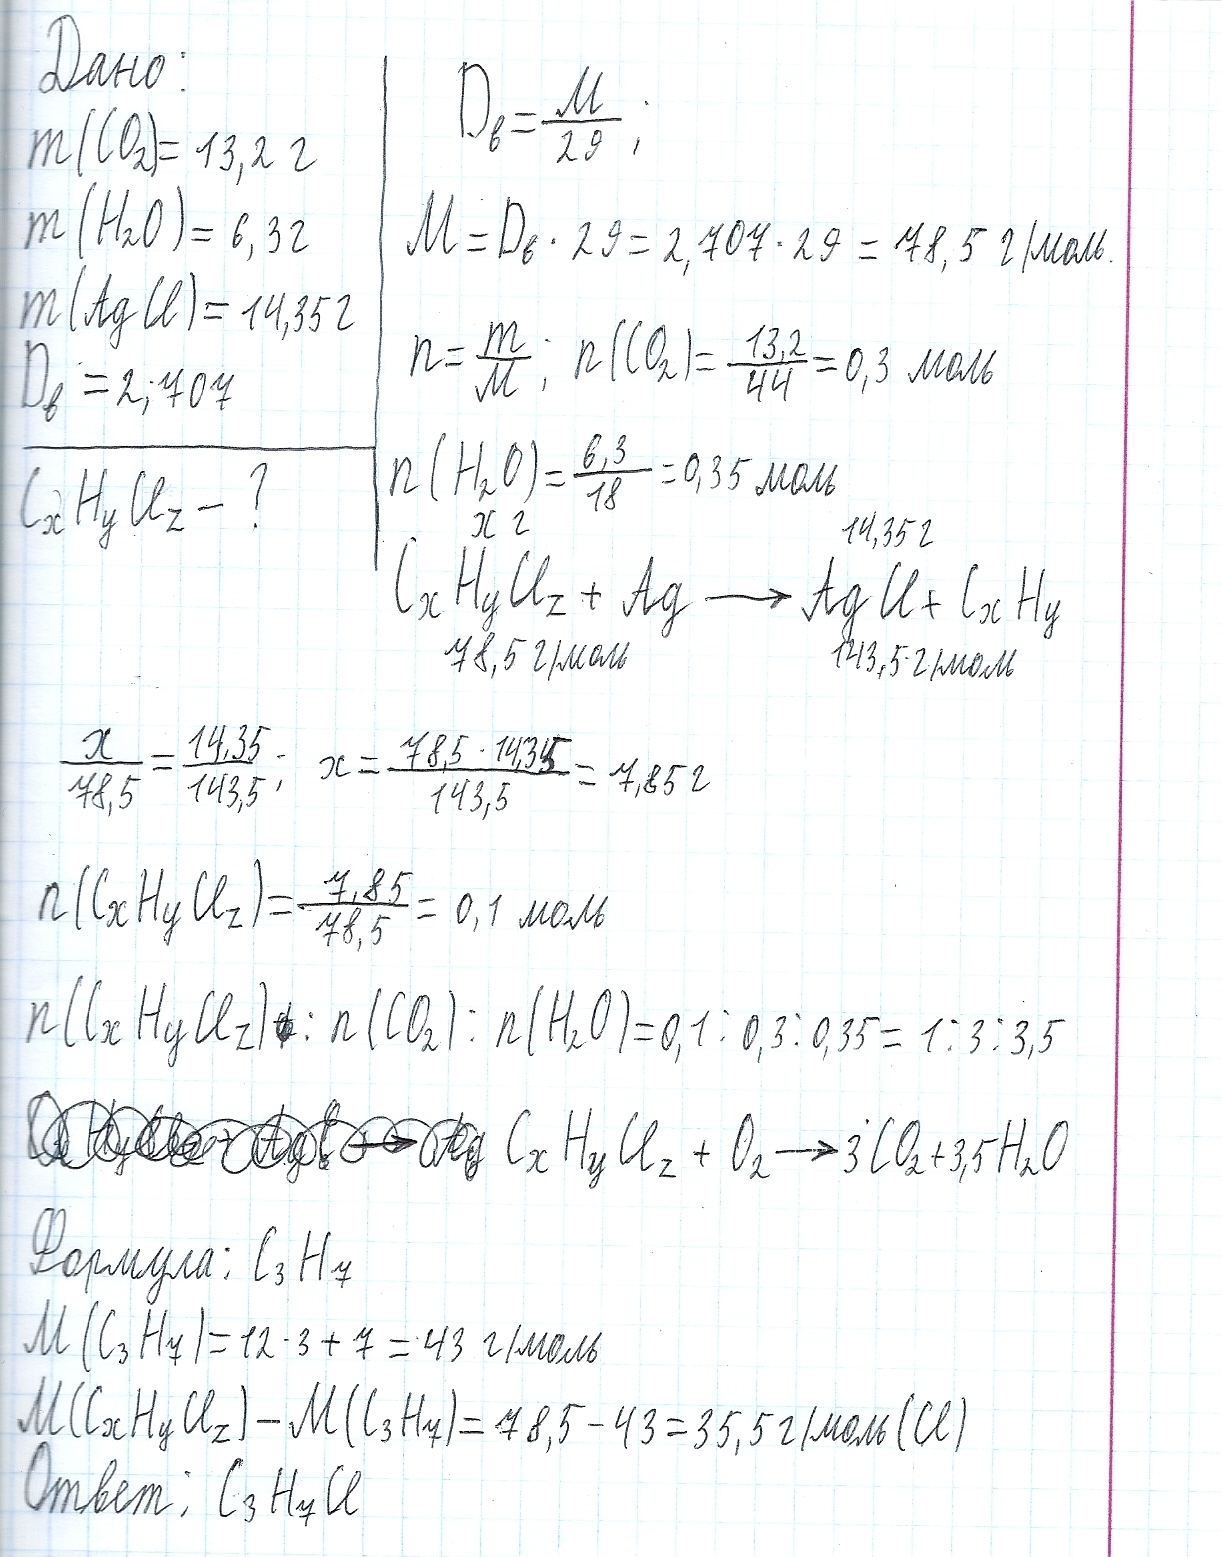 Дано:
m(CO₂)= 13,2 г
m(H₂O)= 6,3 г
m(AgCl)= 14,35 г
Dв = 2,707
CxHyClz – ?
Dв = M/29;
M = Dв · 29 = 2,707 · 29 = 78,5 г/моль.
n = m/M; n(CO₂)= 13,2/44 = 0,3 моль
n(H₂O)= 6,3/18 = 0,35 моль
x г 14,35 г
CxHyClz + Ag → AgCl + CxHy
78,5 г/моль 143,5 г/моль
x/78,5 = 14,35/143,5; x = 78,5 · 14,35/143,5 = 7,85 г
n(CxHyClz)= 7,85/78,5 = 0,1 моль
n(CxHyClz) : n(CO₂) : n(H₂O)= 0,1 : 0,3 : 0,35 = 1 : 3 : 3,5
CxHyClz + O₂ → 3CO₂ + 3,5H₂O
Формула: C₃H₇
M(C₃H₇)= 12·3 + 7 = 43 г/моль
M(CxHyClz) – M(C₃H₇)= 78,5 – 43 = 35,5 г/моль (Cl)
Ответ: C₃H₇Cl